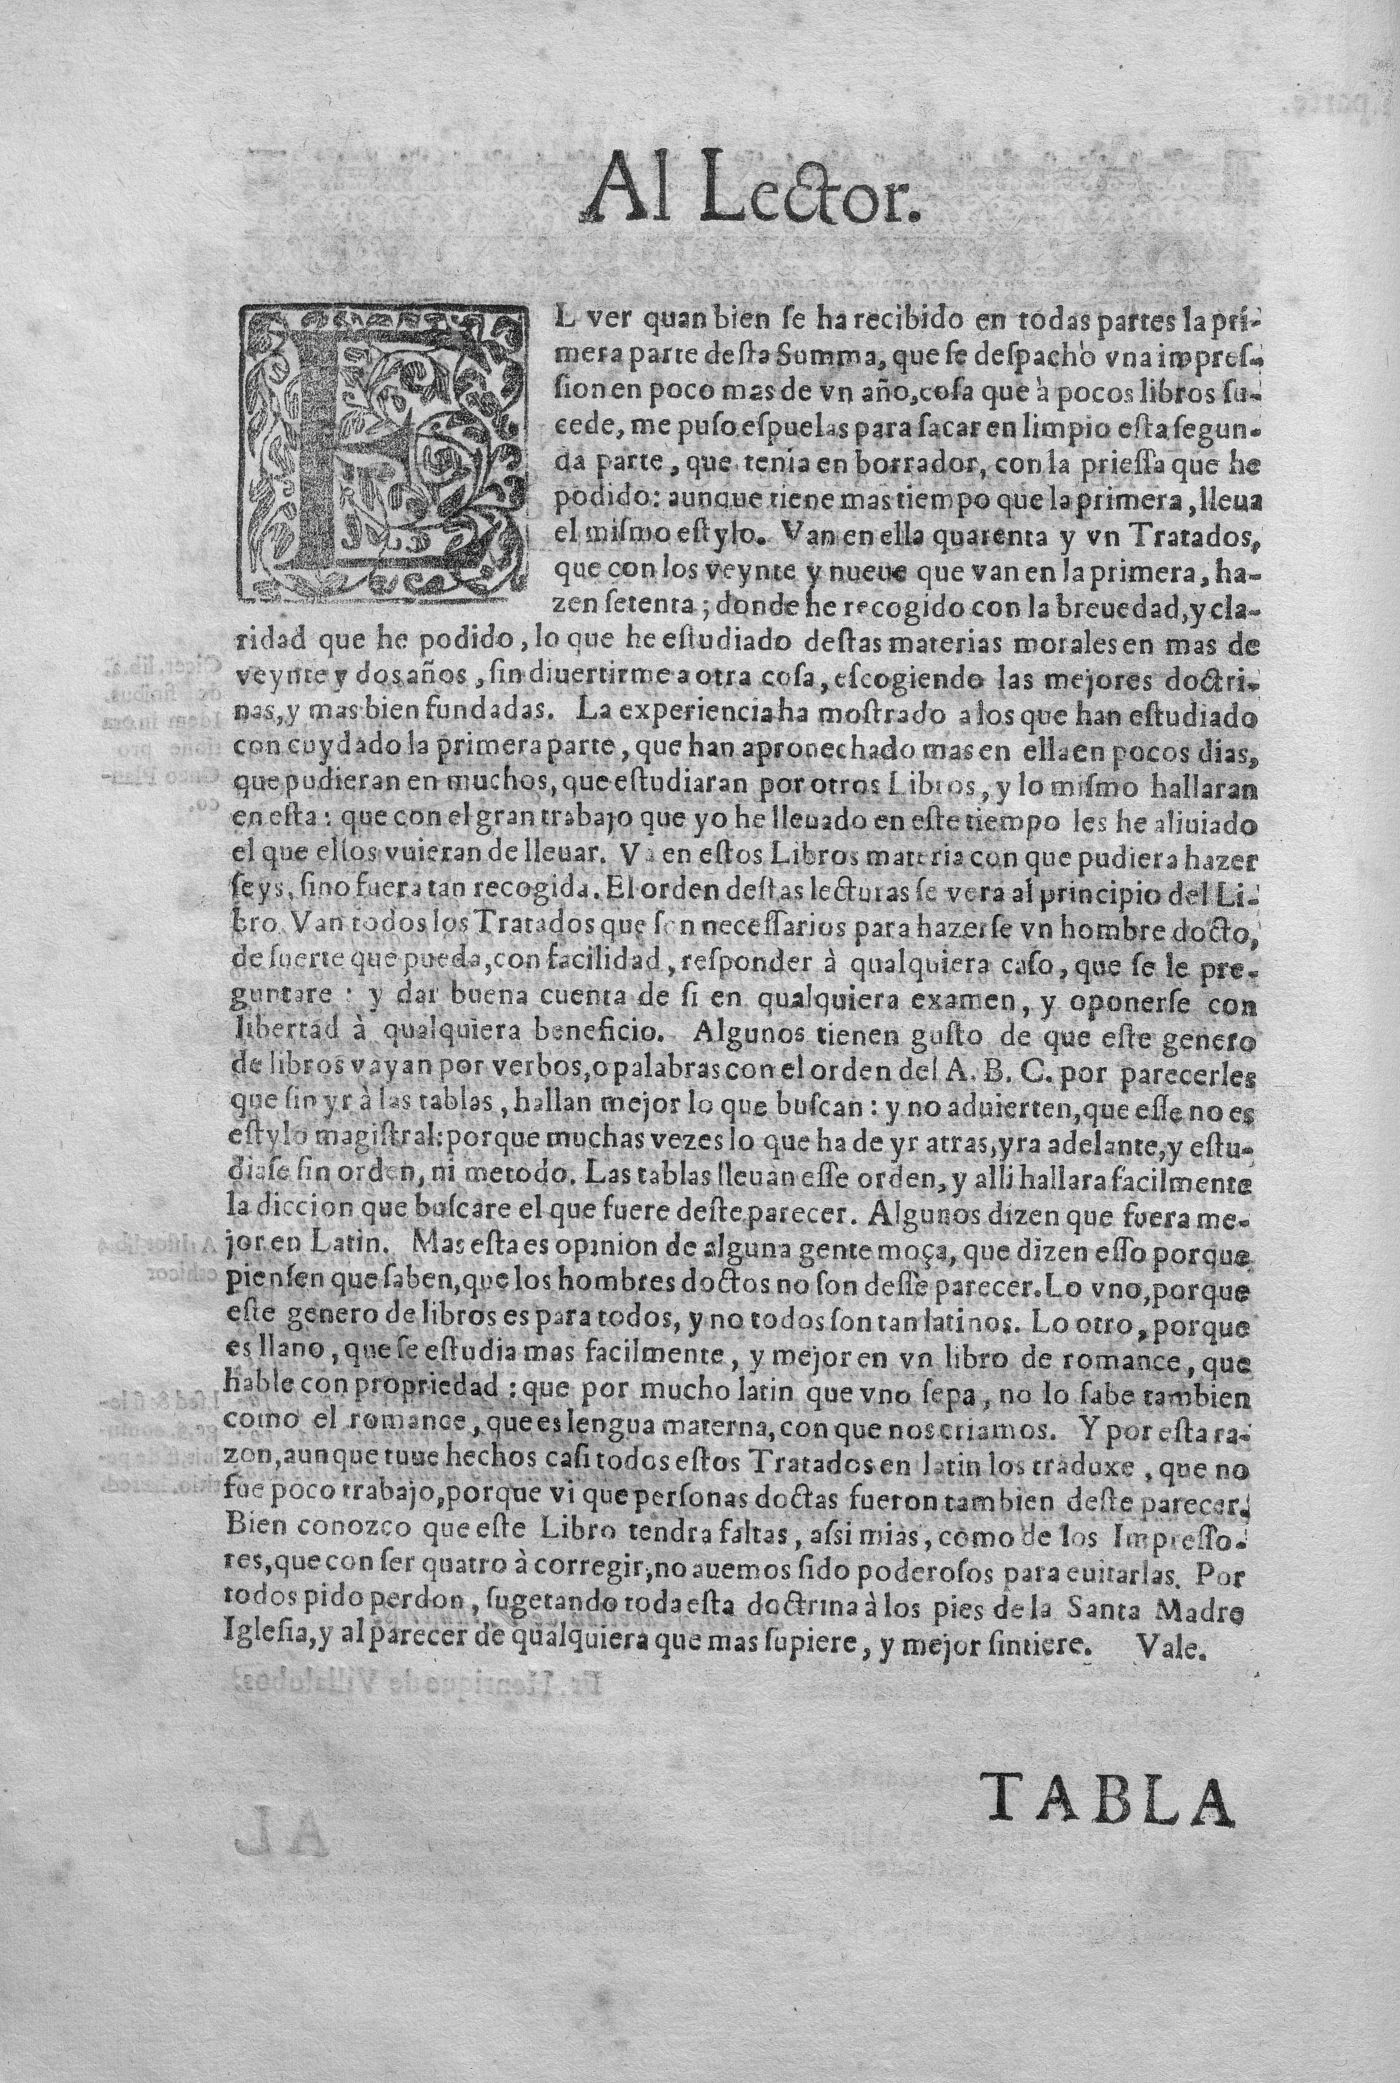 Al Lector.
EL ver quan bien se ha recibido en todas partes la pri-
mera parte desta Summa, que se despachò vna impres-
sion en poco mas de vn año, cosa que à pocos libros su-
cede, me puso espuelas para sacar en limpio esta segun-
da parte, que tenia en borrador, con la priessa que he
podido: aunque tiene mas tiempo que la primera, lleua
el mismo estylo. Van en ella quarenta y vn Tratados,
que con los veynte y nueue que van en la primera, ha-
zen setenta; donde he recogido con la breuedad, y cla-
ridad que he podido, lo que he estudiado destas materias morales en mas de
veynte y dos años, sin diuertirme a otra cosa, escogiendo las mejores doctri-
nas, y mas bien fundadas. La experiencia ha mostrado a los que han estudiado
con cuydado la primera parte, que han aprouechado mas en ella en pocos dias,
que pudieran en muchos, que estudiaran por otros Libros, y lo mismo hallaran
en esta: que con el gran trabajo que yo he lleuado en este tiempo les he aliuiado
el que ellos vuieran de lleuar. Va en estos Libros materia con que pudiera hazer
seys, sino fuera tan recogida. El orden destas lecturas se vera al principio del Li-
bro. Van todos los Tratados que son necessarios para hazerse vn hombre docto,
de suerte que pueda, con facilidad, responder à qualquiera caso, que se le pre-
guntare: y dar buena cuenta de si en qualquiera examen, y oponerse con
libertad à qualquiera beneficio. Algunos tienen gusto de que este genero
de libros vayan por verbos, o palabras con el orden del A. B. C. por parecerles
que sin yr à las tablas, hallan mejor lo que buscan: y no aduierten, que esse no es
estylo magistral: porque muchas vezes lo que ha de yr atras, yra adelante, y estu-
diase sin orden, ni metodo. Las tablas lleuan esse orden, y alli hallara facilmente
la diccion que buscare el que fuere deste parecer. Algunos dizen que fuera me-
jor en Latin. Mas esta es opinion de alguna gente moça, que dizen esso porque
piensen que saben, que los hombres doctos no son desse parecer. Lo vno, porque
este genero de libros es para todos, y no todos son tan latinos. Lo otro, porque
es llano, que se estudia mas facilmente, y mejor en vn libro de romance, que
hable con propriedad: que por mucho latin que vno sepa, no lo sabe tambien
como el romance, que es lengua materna, con que nos criamos. Y por esta ra-
zon, aunque tuue hechos casi todos estos Tratados en latin los traduxe, que no
fue poco trabajo, porque vi que personas doctas fueron tambien deste parecer.
Bien conozco que este Libro tendra faltas, assi mias, como de los Impresso-
res, que con ser quatro à corregir, no auemos sido poderosos para euitarlas. Por
todos pido perdon, sugetando toda esta doctrina à los pies de la Santa Madre
Iglesia, y al parecer de qualquiera que mas supiere, y mejor sintiere. Vale.
TABLA